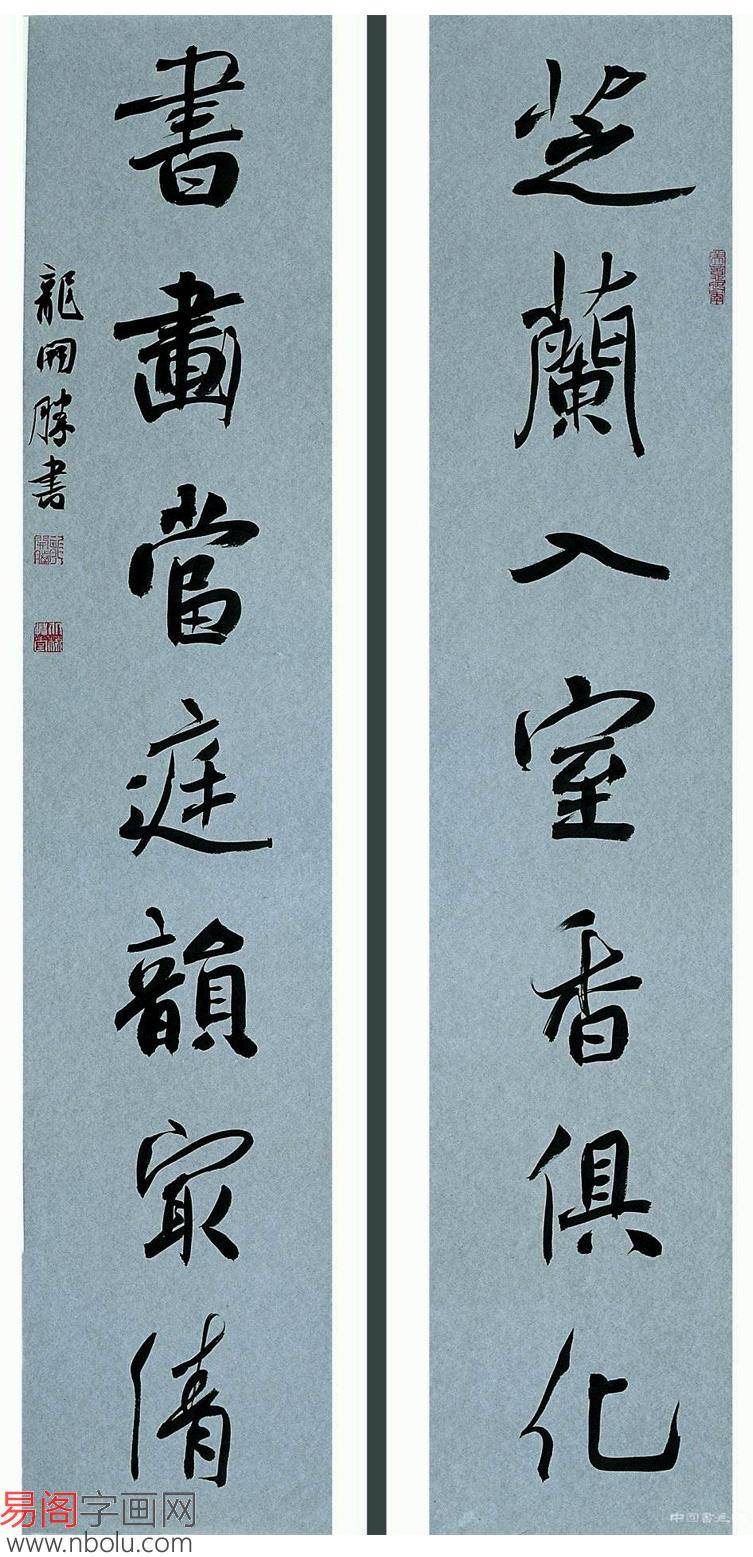 芝蘭入室香俱化
書畫當庭韻冣清
龍開勝書
易阁字画网
www.nbolu.com